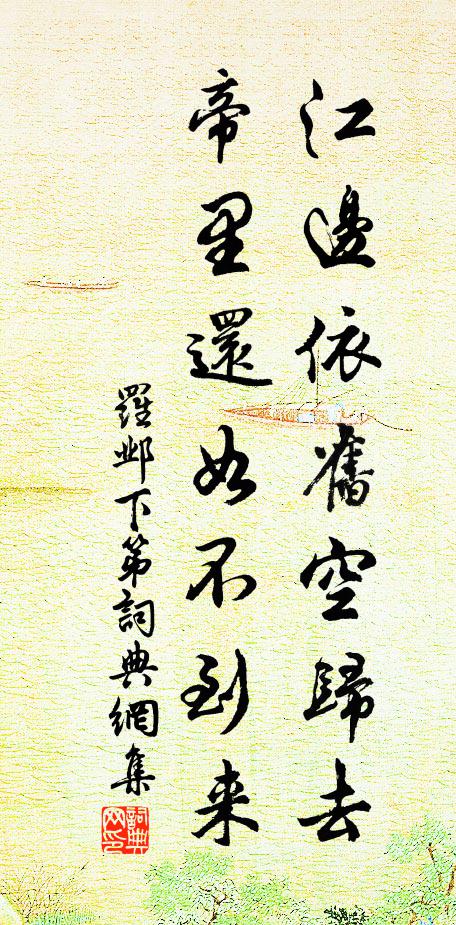 江邊依舊空歸去
帝里還如不到来
羅鄴下第詞典網集
詞典网印